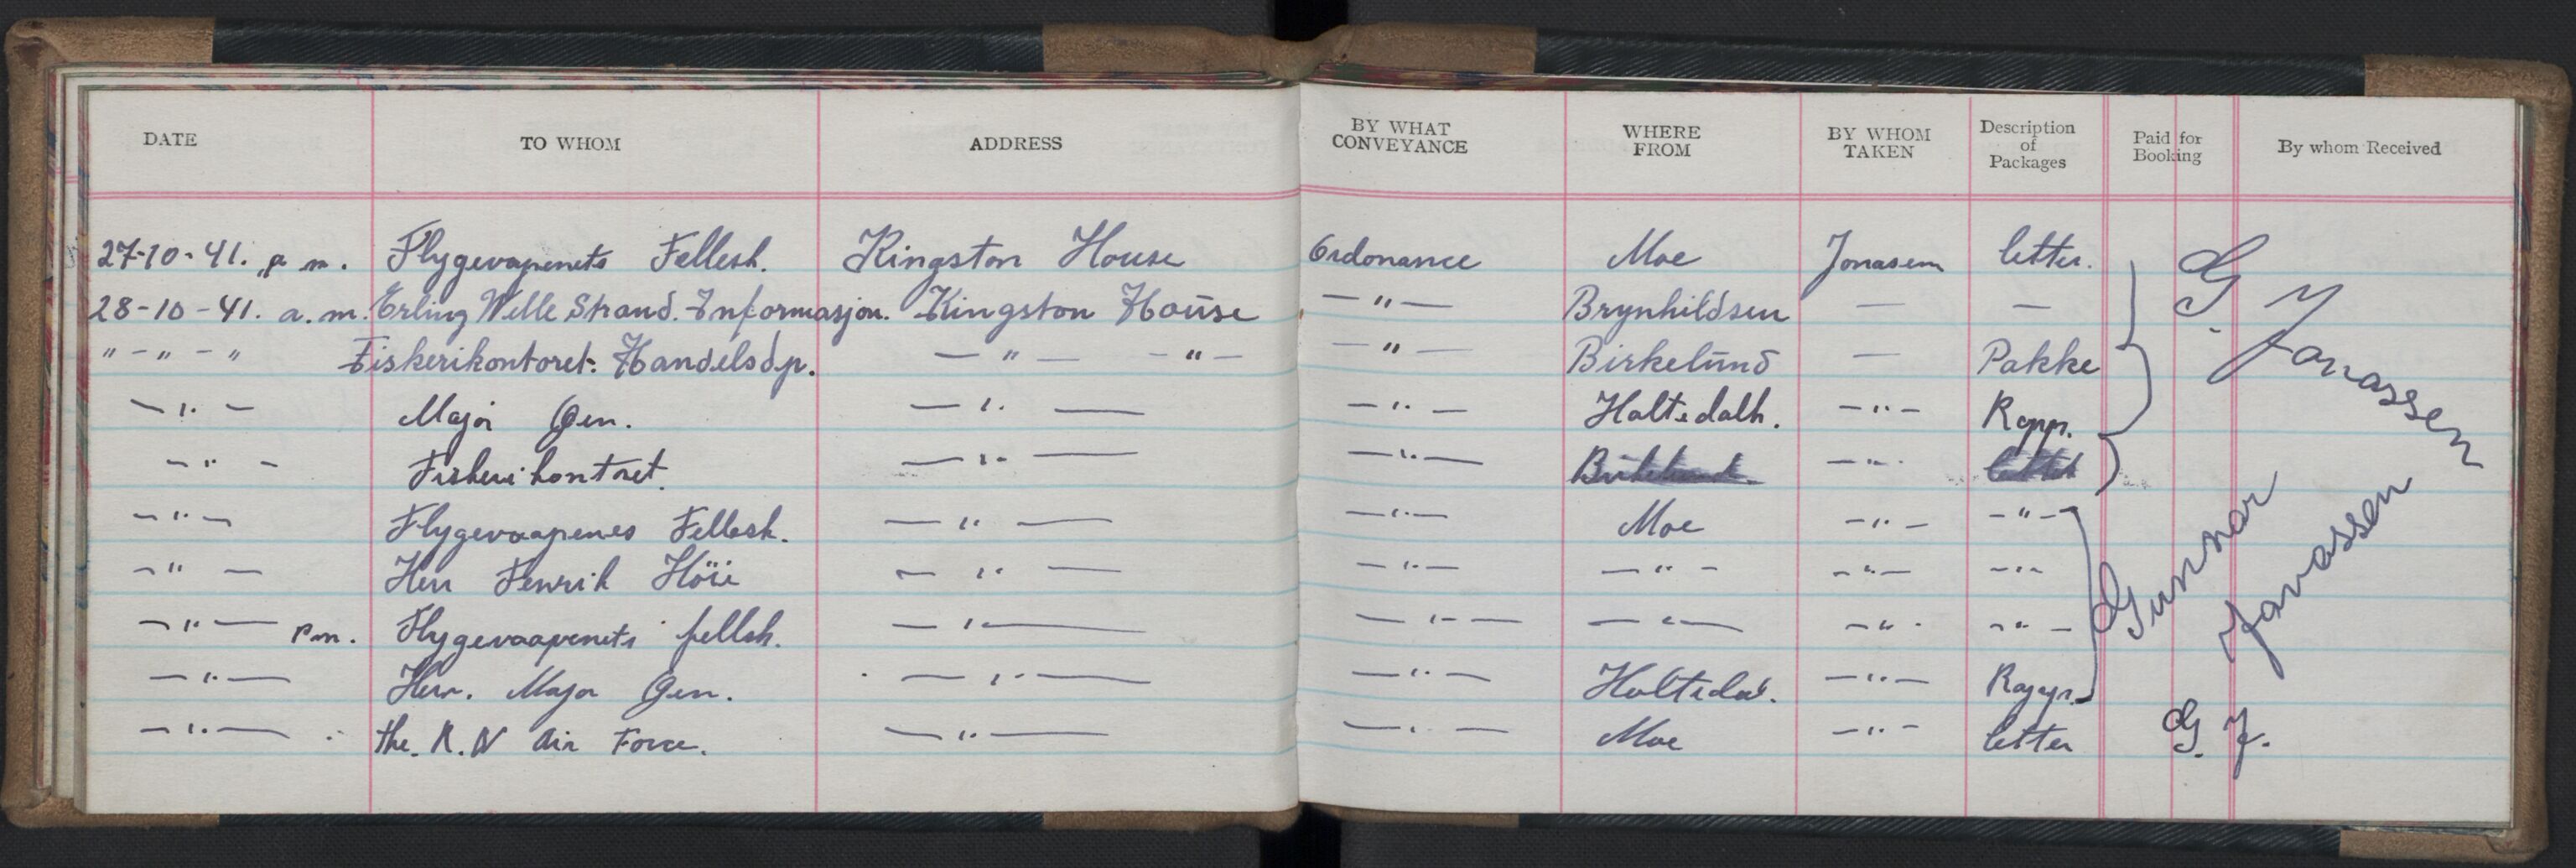 DATE TO WHOM ADDRESS BY WHAT CONVEYANCE WHERE FROM BY WHOM TAKEN Description of Packages Paid for Booking By whom Received
27-10-41. p.m. Flygevapenets Fellesk. Kingston House Ordonance Moe Jonasen letter.
28-10-41. a.m. Erling Welle Strand. Informasjon. Kingston House — " — Brynhildsen — —
" - " - " Fiskerikontoret. Handelsdp. — " — — " — — " — Birkelund — Pakke
— " — Major Gen. — " — — " — Holtsdalh. — " — Rapp.
— " — Fiskerikontoret. — " — — " — — " —
— " — Flygevaapenes Fellesk. — " — — " — Moe — " — — " —
— " — Herr Fenrik Höie — " — — " — — " — — " — — " —
— " — p.m. Flygevaapenets fellsk. — " — — " — — " — — " — — " —
— " — Herr. Major Gen. — " — — " — Holtsdal. — " — Rapp.
— " — the. R.N Air Force. — " — — " — Moe — " — letter
G. Jonassen
Gunnar Jonassen
G. J.